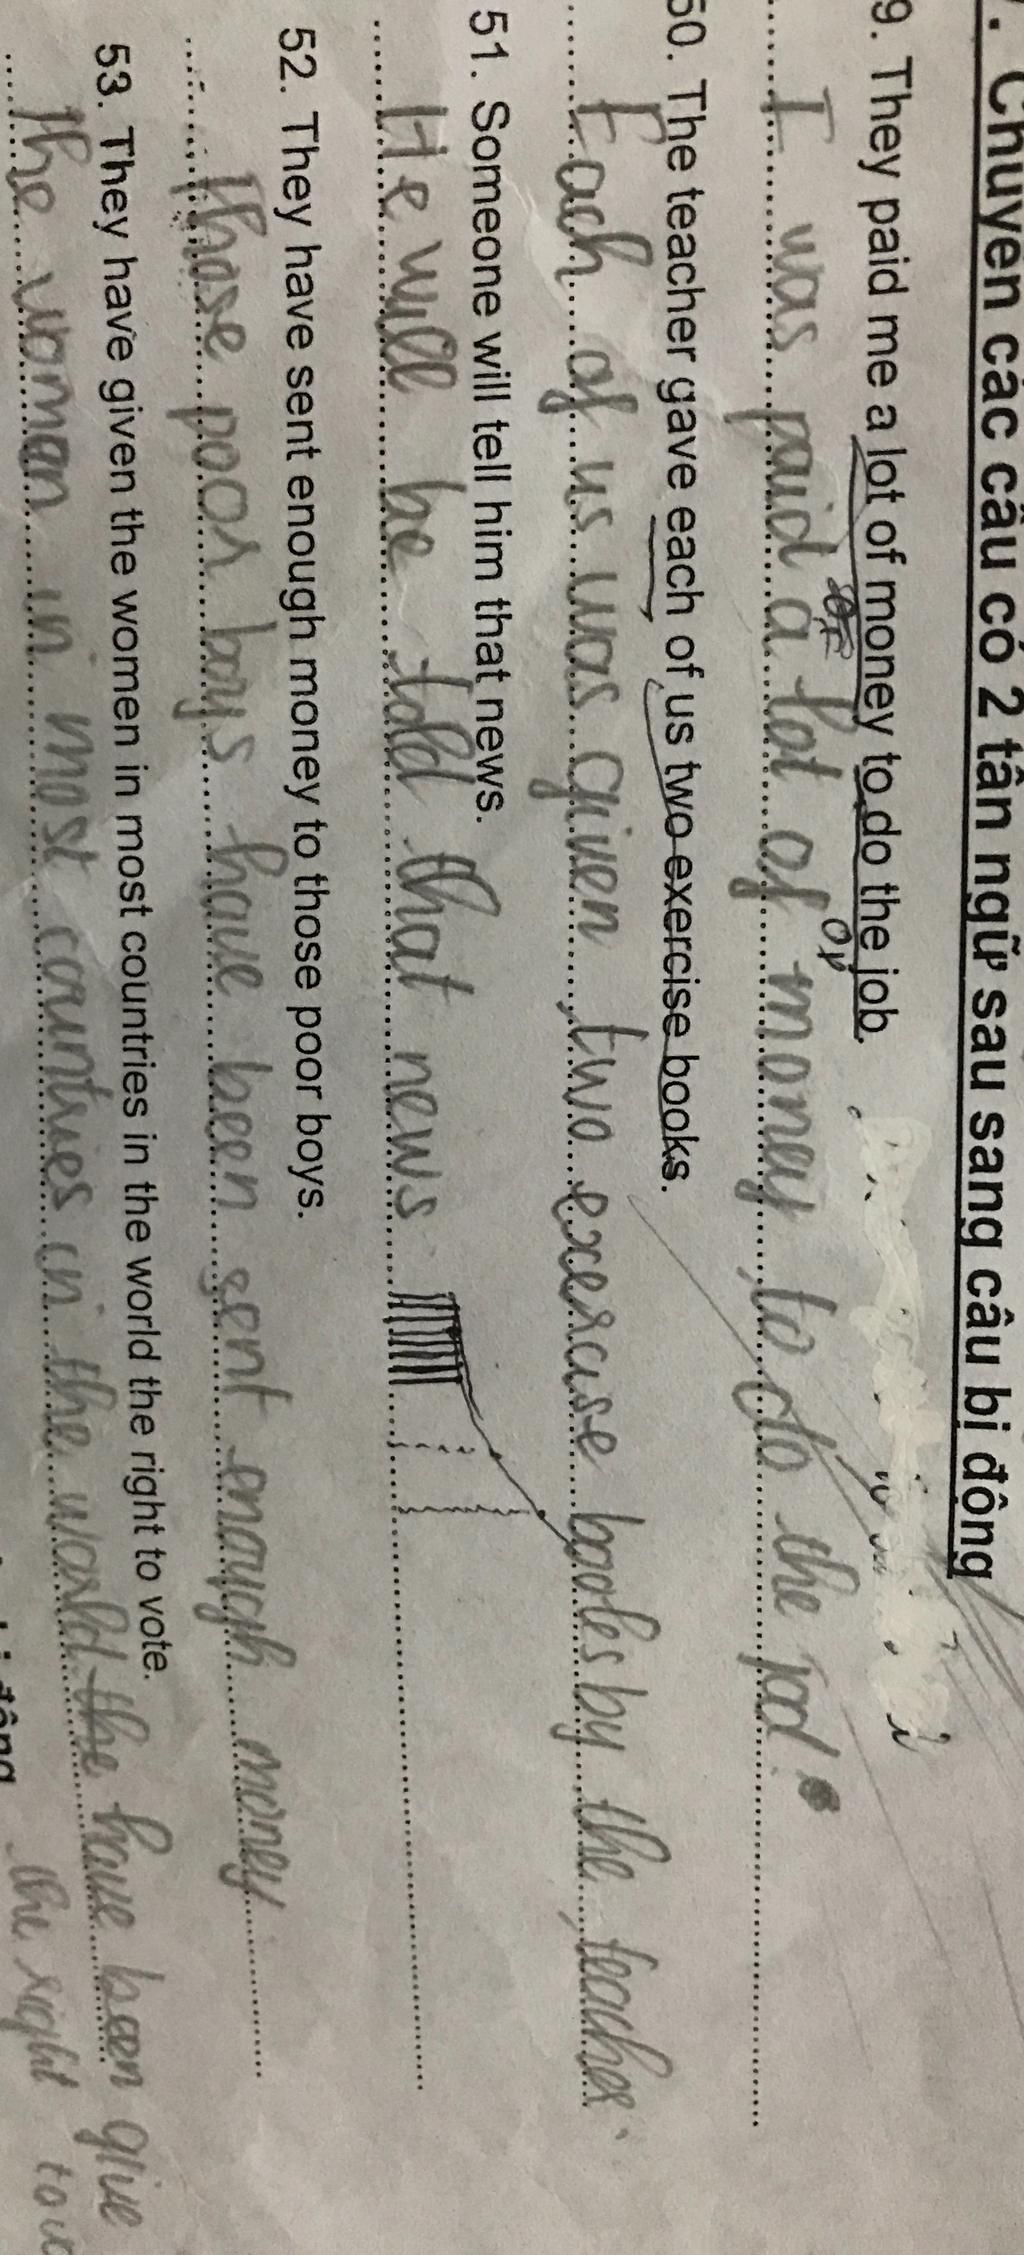 . Chuyển các câu có 2 tân ngữ sau sang câu bị động
9. They paid me a lot of money to do the job.
I was paid a lot of money to do the jod.
50. The teacher gave each of us two exercise books.
Each of us was given two exercise books by the teacher.
51. Someone will tell him that news.
He will be told that news
52. They have sent enough money to those poor boys.
those poor boys have been sent enough money
53. They have given the women in most countries in the world the right to vote.
The woman in most countries in the world the have been give
the right to vo